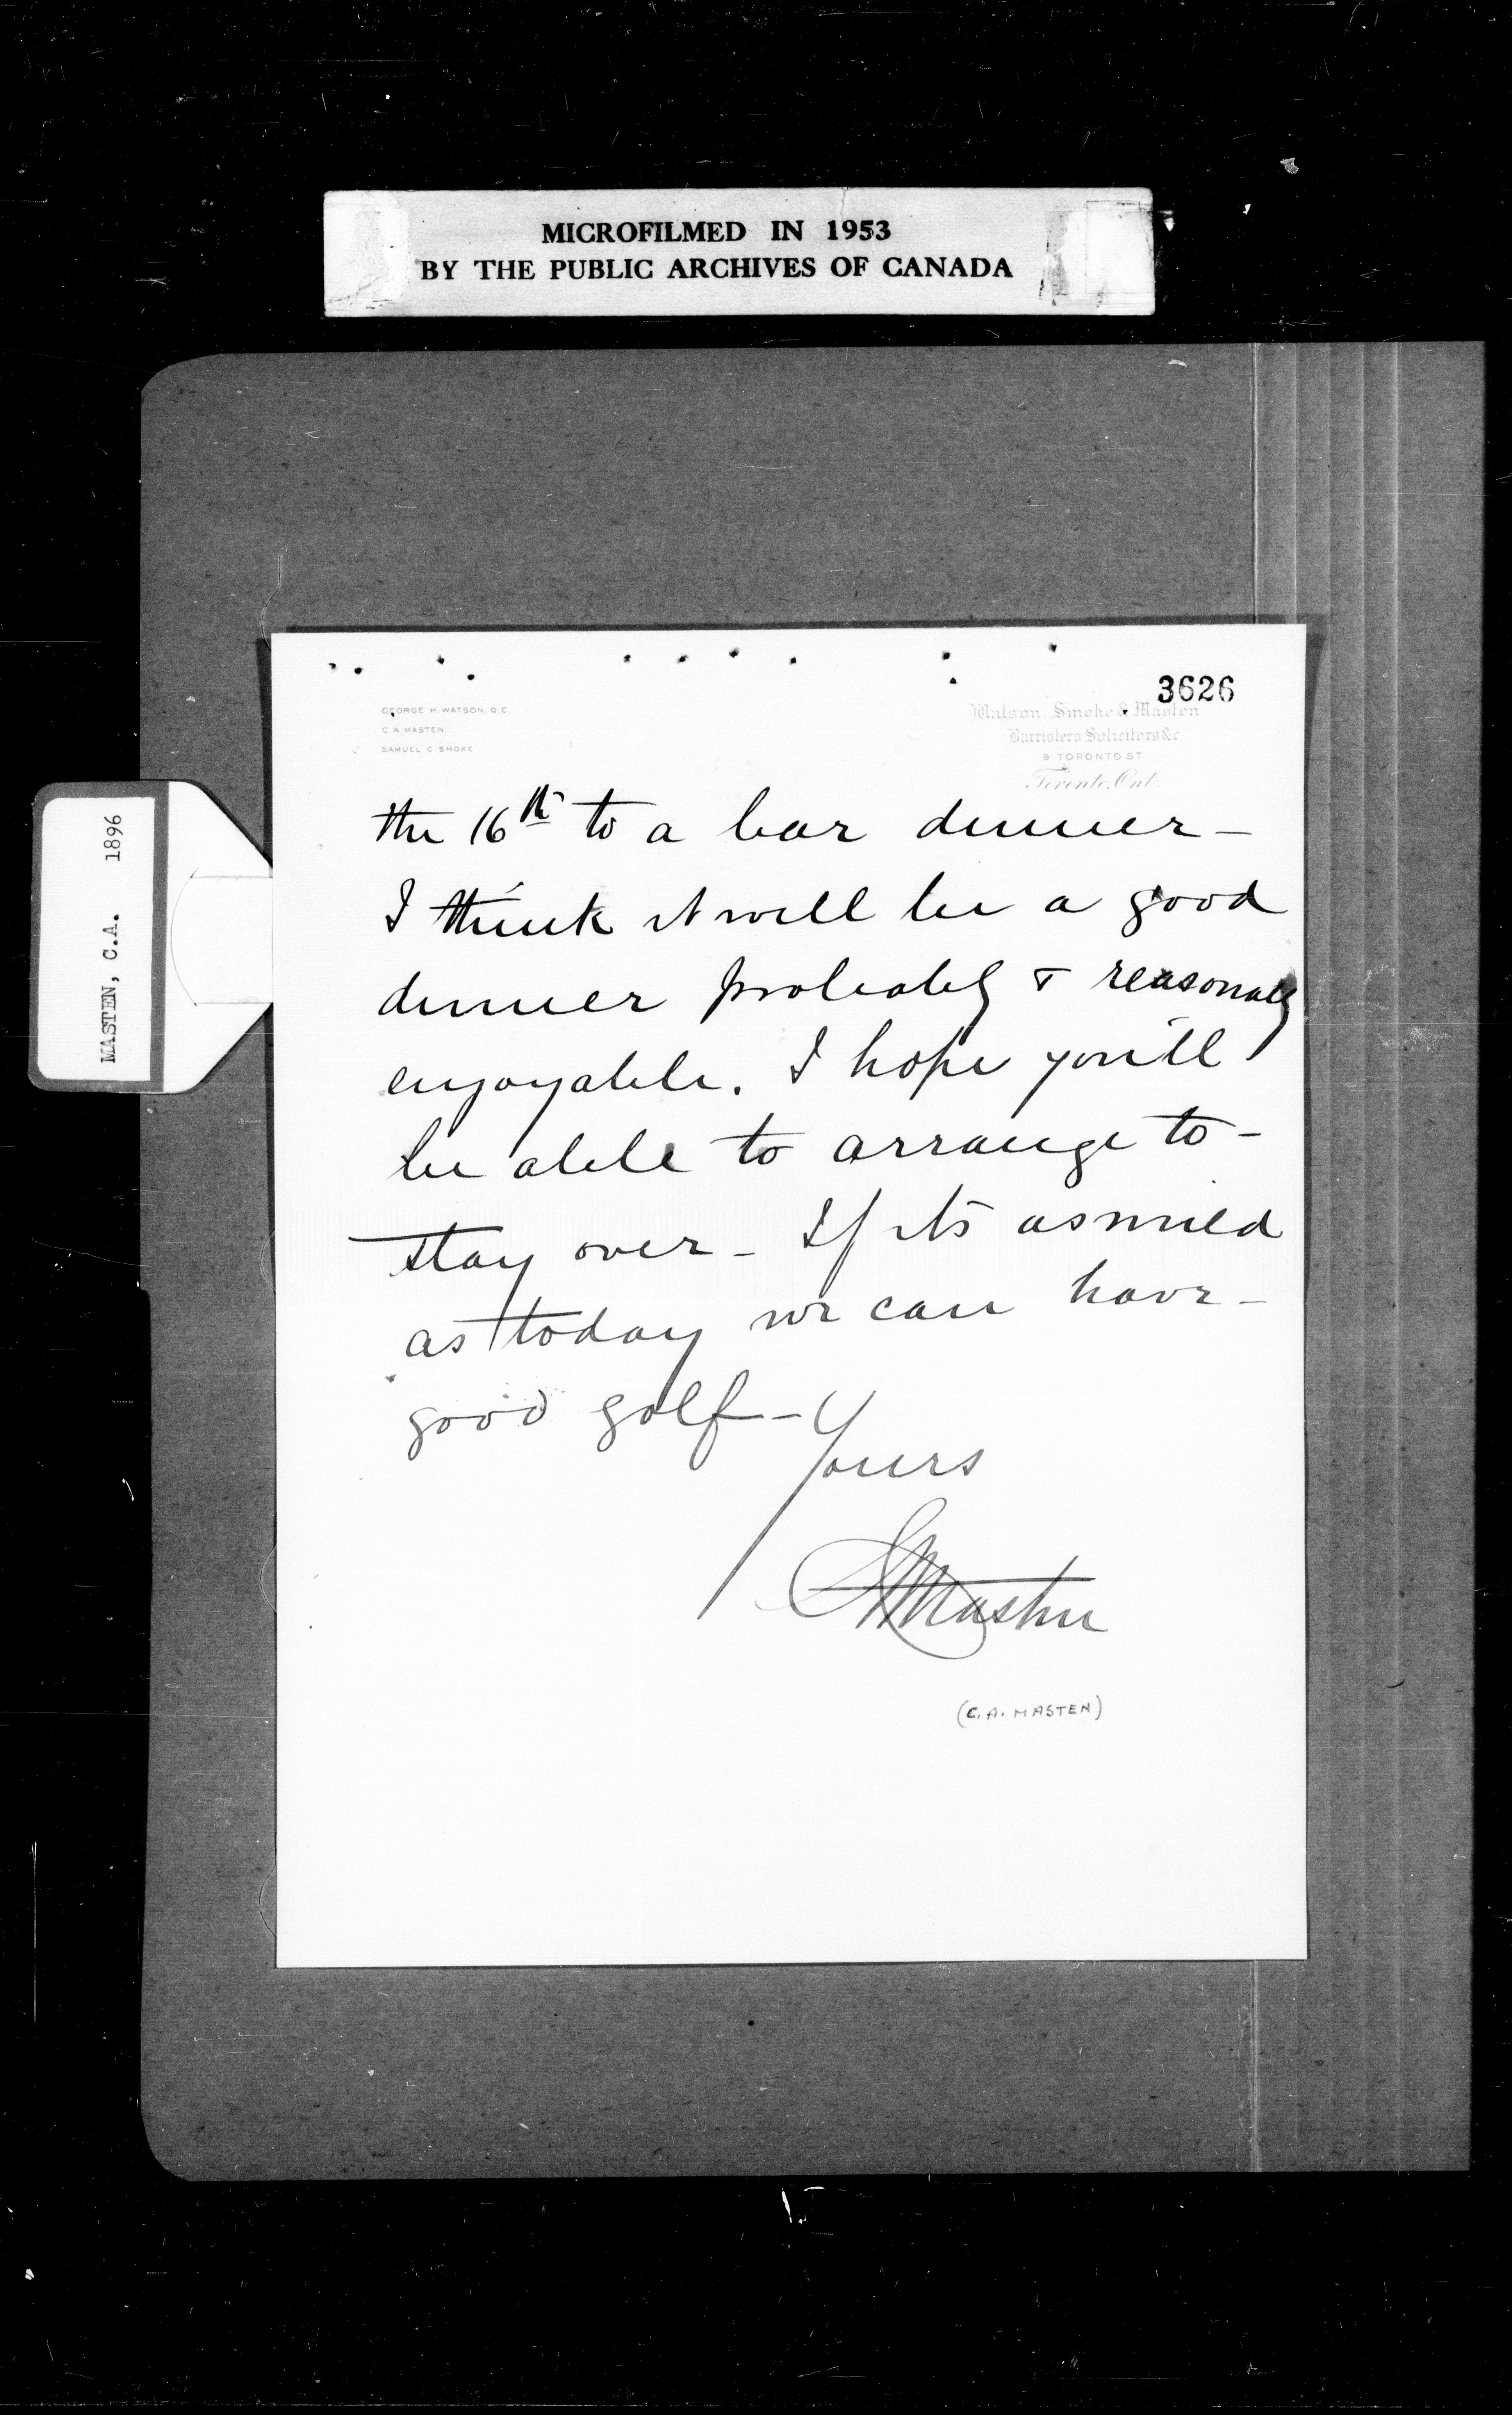 MICROFILMED IN 1953
BY THE PUBLIC ARCHIVES OF CANADA
MASTEN, C.A. 1896
3626
GEORGE H. WATSON, Q.C.
C. A. MASTEN.
SAMUEL C. SMOKE
Watson, Smoke & Masten
Barristers Solicitors &c
9 TORONTO ST
Toronto, Ont.
the 16th to a bar dinner –
I think it will be a good
dinner probably & reasonably
enjoyable. I hope you'll
be able to arrange to –
stay over – If its as mild
as today we can have –
good golf – Yours
CAMasten
(C. A. MASTEN)